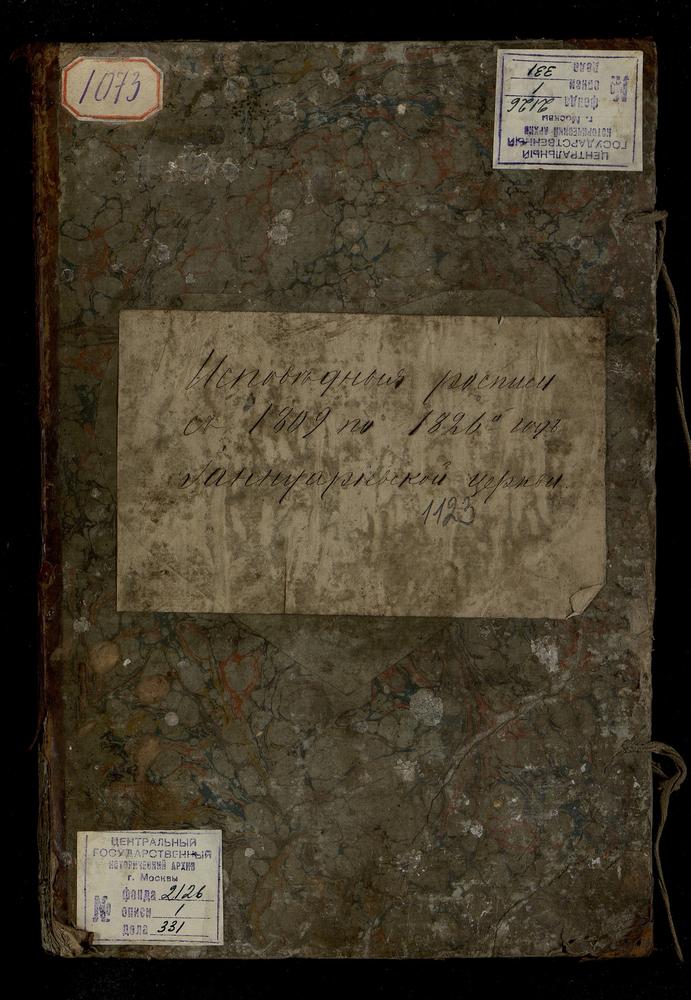 1073
ЦЕНТРАЛЬНЫЙ
ГОСУДАРСТВЕННЫЙ
ИСТОРИЧЕСКИЙ АРХИВ
г. Москвы
№ фонда 2126
описи 1
дела 331
Исповѣдныя росписи
съ 1809 по 1826й годъ
Ианнуариевской церкви.
1123
ЦЕНТРАЛЬНЫЙ
ГОСУДАРСТВЕННЫЙ
ИСТОРИЧЕСКИЙ АРХИВ
г. Москвы
№ фонда 2126
описи 1
дела 331